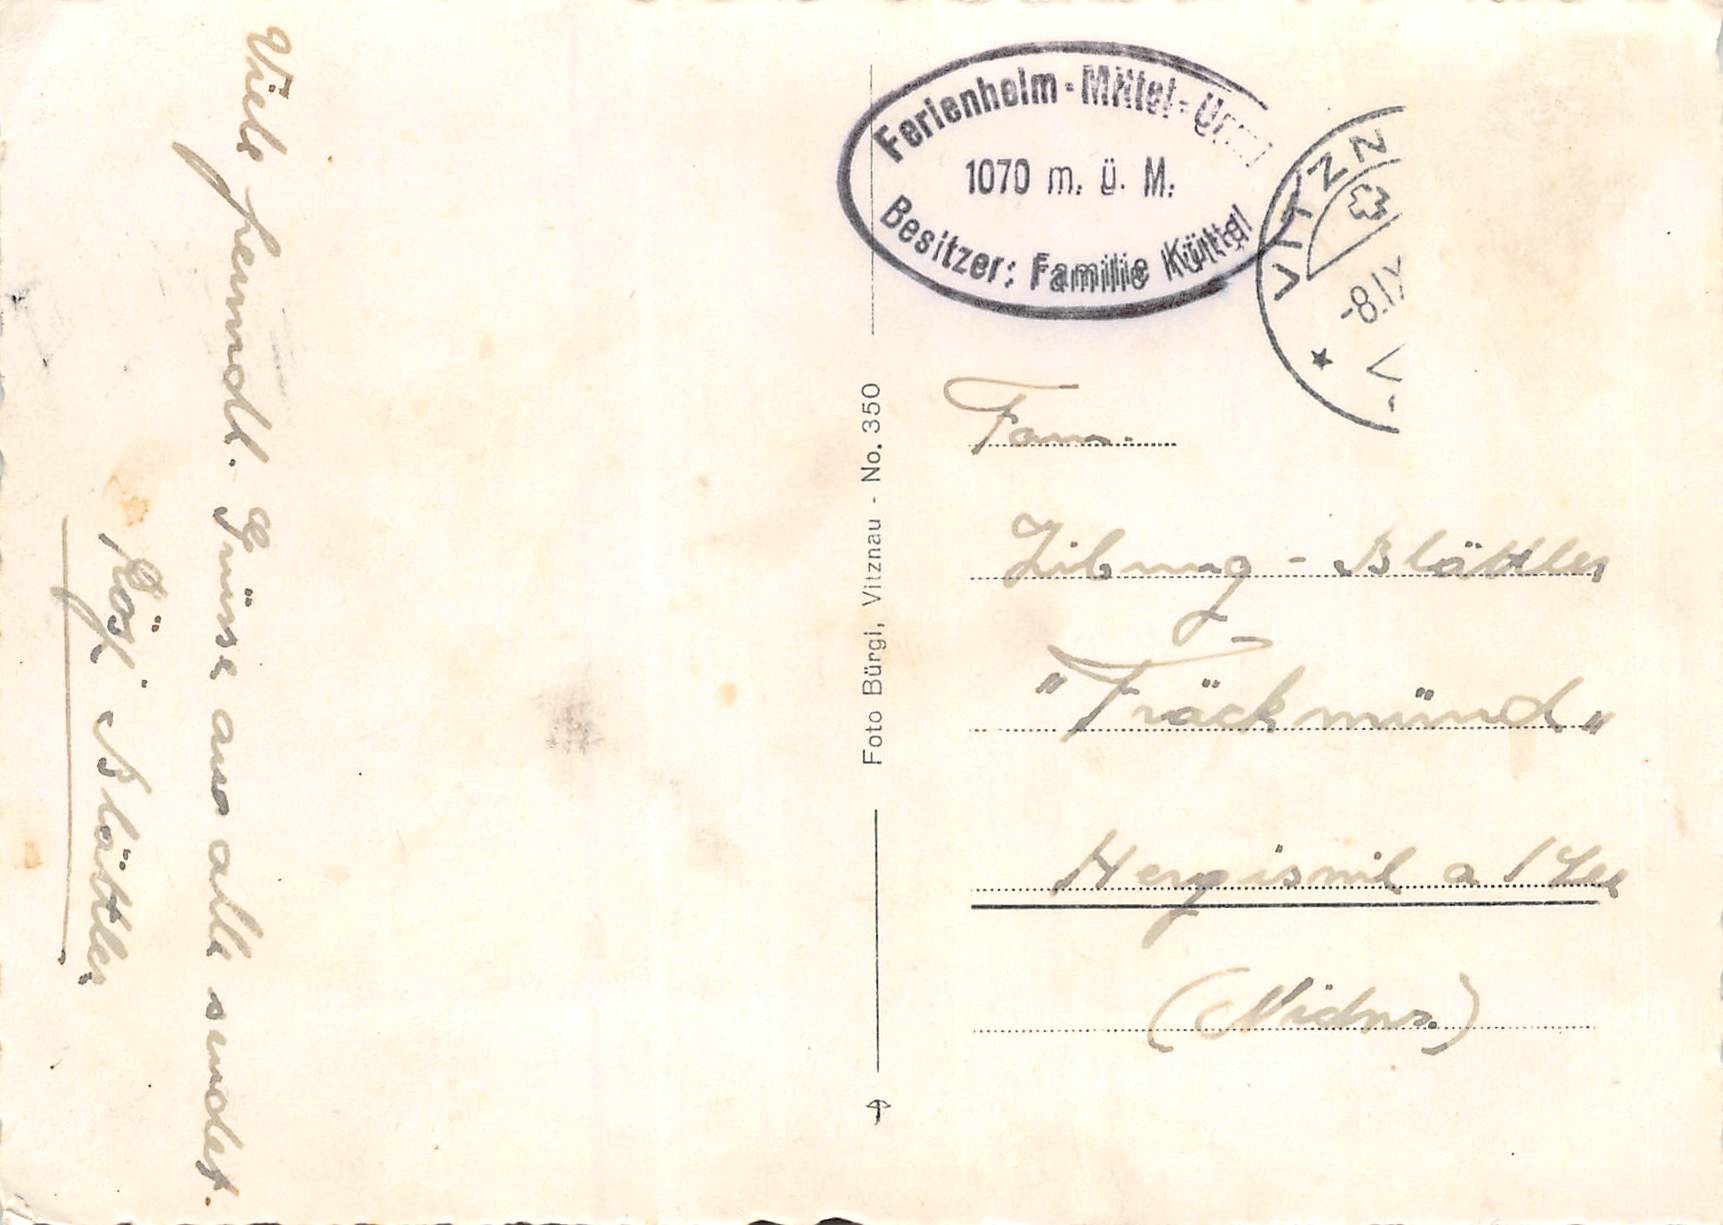 Viele freundl. Grüsse aus alle sendet.
Rösi Blättler
Ferienheim - Mittel -
1070 m. ü. M.
Besitzer: Familie Küttel
VITZN
-8.IX
Foto Bürgi, Vitznau - No. 350
Fam.
Zibung - Blättler
"Träckmünd"
Hergiswil a / See
(Nidw.)